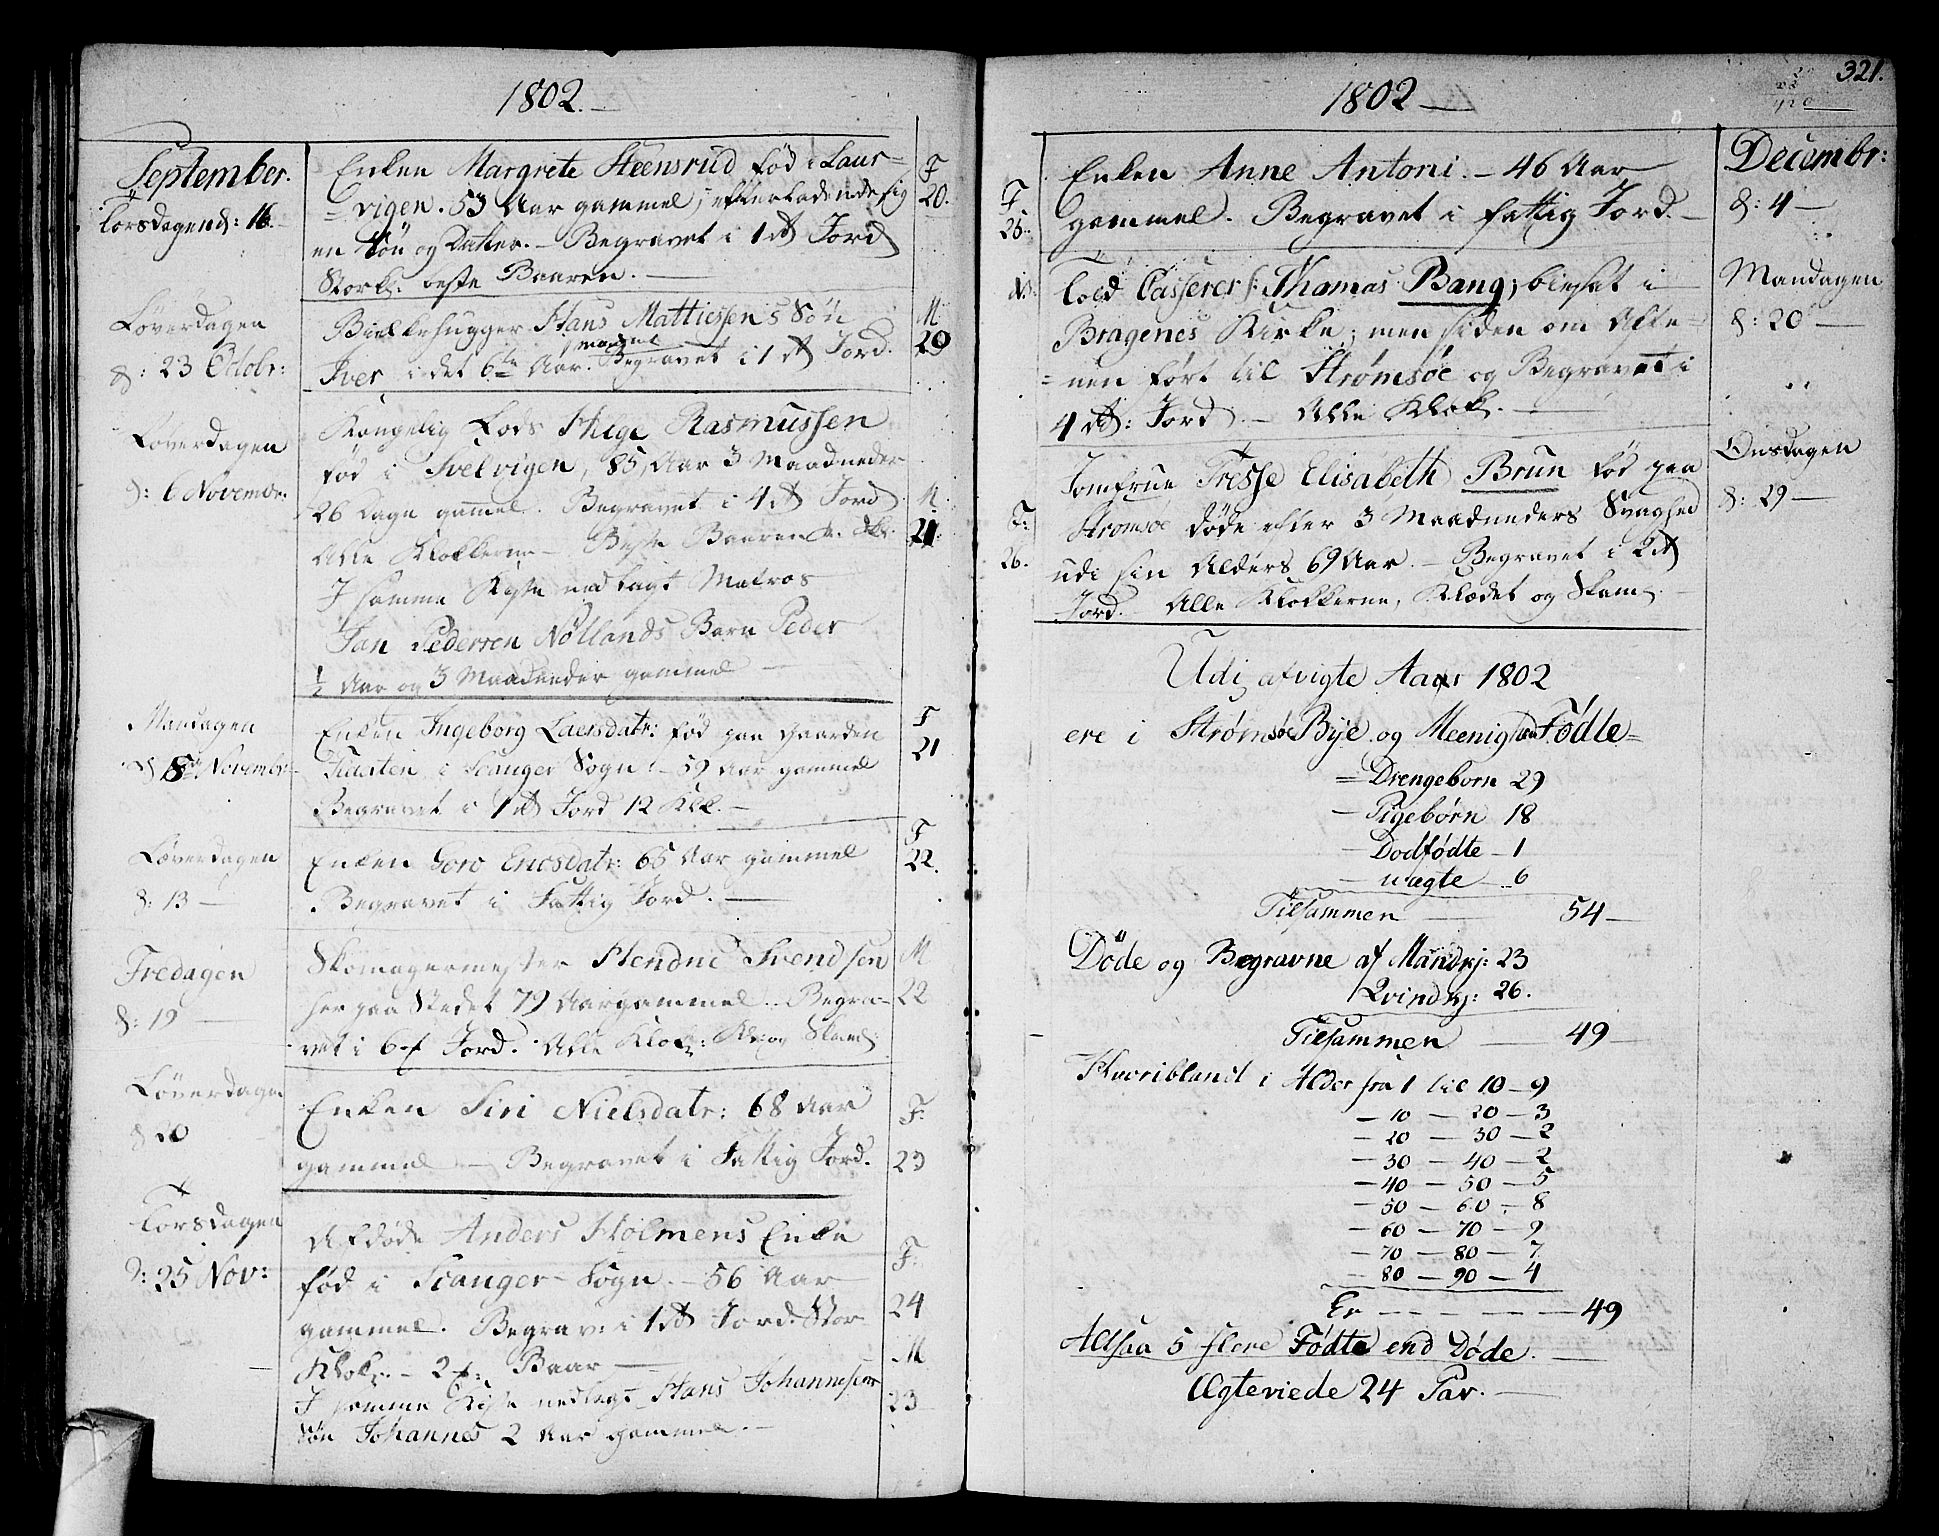 1802.
September.
Torsdagen d: 16.
Enken Margrete Steensrud fød i Laur-
vigen. 53 Aar gammel, efterladende sig
en Søn og Datter. – Begravet i 1 Jord
Stork. beste Baaren.
F
20.
Løverdagen
d: 23 Octobr:
Bielkehugger Hans Mattiessens Søn
Iver i det 6te Aar. Begravet i 1 Jord.
M
20
Løverdagen
d: 6 Novembr:
Kongelig Lods Helge Rasmussen
fød i Svelvigen, 85 Aar 3 Maadneder
26 Dage gammel. Begravet i 4 Jord
Alle Klokkerne – Beste Baaren
I samme Kiste nedlagt Matros
Jan Pedersen Nøllands Barn Peder
½ Aar og 3 Maadneder gammel
M.
21.
Mandagen
d 8 Novembr:
Enken Ingeborg Laersdatr: fød paa Gaarden
i Scanger Sogn. – 59 Aar gammel
Begravet i 1 Jord 12 Kl.
F
21
Løverdagen
d: 13 –
Enken Goro Ericsdatr: 65 Aar gammel
Begravet i Fattig Jord.
F
22.
Fredagen
d: 19 –
Skomagermester Hendric Svendsen
her paa Stedet 79 Aar gammel. Begra-
vet i 6 Jord. Alle Klok: Kl: og Skam:
M
22
Løverdagen
d 20
Enken Siri Nielsdatr: 68 Aar
gammel – Begravet i Fattig Jord.
F.
23
Torsdagen
d: 25 Nov:
Afdøde Anders Holmens Enke
fød i Scanger Sogn. – 56 Aar
gammel. Begrav: i 1 Jord. Stor
Klok. – 2 Baar
I samme Kiste nedlagt Hans Johannesen
Søn Johannes 2 Aar gammel. –
F.
24
M
23
1802
321.
Decembr:
F
25.
Enken Anne Antoni. – 46 Aar
gammel. Begravet i Fattig Jord.
d: 4 –
Told Casserer Thomas Bang, bisat i
Bragenes Kirke; men siden om Afte-
nen ført til Strømsøe og Begravet i
4 Jord. – Alle Klok.
Mandagen
d: 20 –
F:
26.
Jomfrue Tresse Elisabeth Brun fød paa
Strømsøe døde efter 3 Maadneders Svaghed
udi sin Alders 69 Aar. – Begravet i 2
Jord. Alle Klokkerne, Klædet og Skam.
Onsdagen
d: 29 –
Udi afvigte Aar 1802
ere i Strømsøe Bye og Meenighed Fødte
= Drengebørn 29
– Pigebørn 18
– Dødfødte – 1
– uægte – 6
Tilsammen 54 –
Døde og Begravne af Mandkj: 23
Qvindkj: 26.
Tilsammen – 49 –
Hvoriblandt i Alder fra 1 til 10 – 9
– 10 – 20 – 3
– 20 – 30 – 2
– 30 – 40 – 2
– 40 – 50 – 5
– 50 – 60 – 8
– 60 – 70 – 9
– 70 – 80 – 7
– 80 – 90 – 4
Er – – – – – 49
Altsaa 5 flere Fødte end Døde.
Ægteviede 24 Par. –